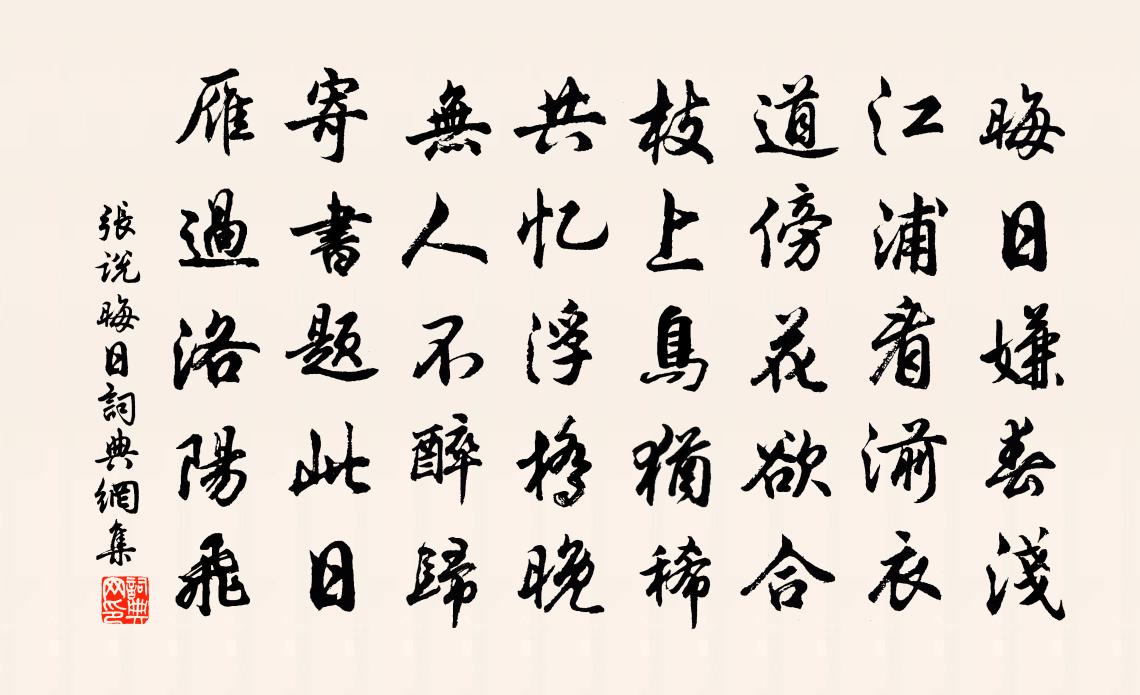 晦日嫌春淺
江浦看湔衣
道傍花欲合
枝上鳥猶稀
共忆浮橋晚
無人不醉歸
寄書題此日
雁過洛陽飛
張說晦日詞典網集
詞典网印